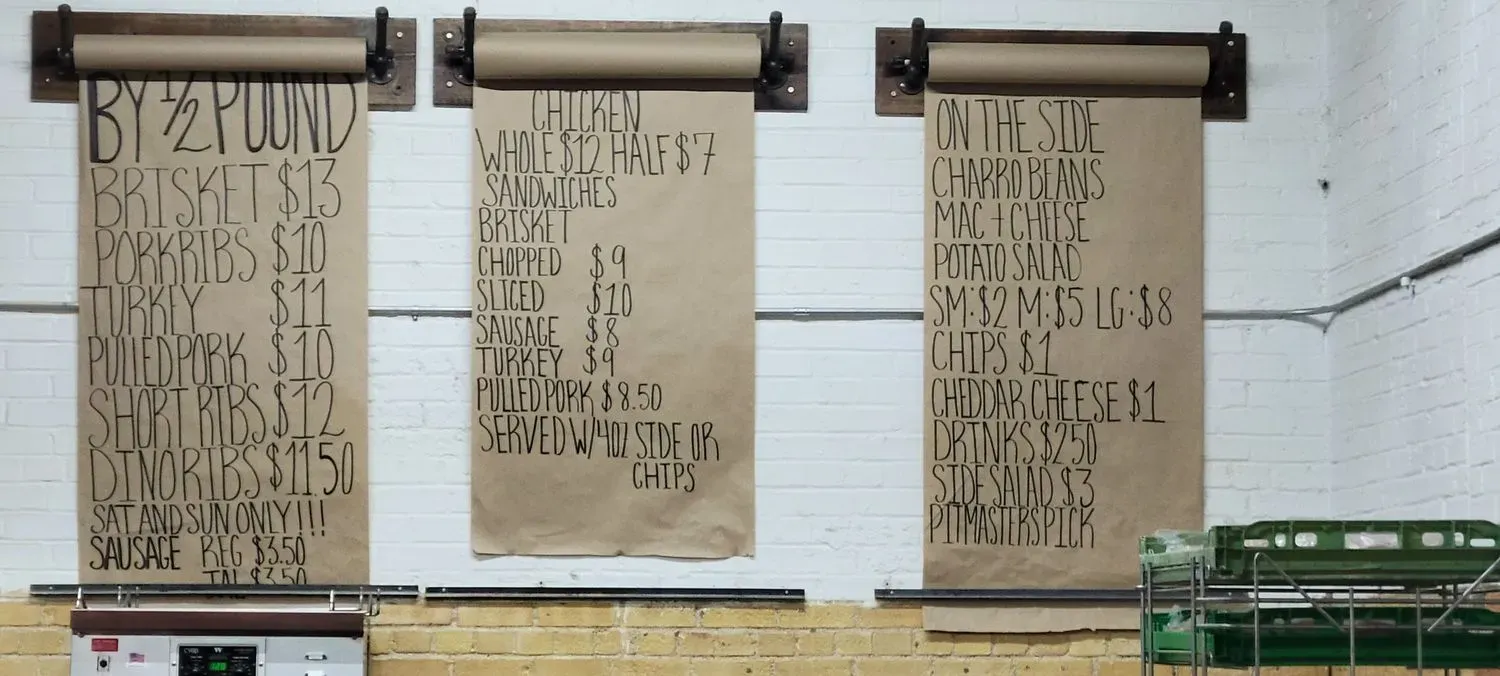 BY 1/2 POUND
BRISKET $13
PORK RIBS $10
TURKEY $11
PULLED PORK $10
SHORT RIBS $12
DINO RIBS $11.50
SAT AND SUN ONLY!!!
SAUSAGE REG $3.50
JAL $3.50
CHICKEN
WHOLE $12 HALF $7
SANDWICHES
BRISKET
CHOPPED $9
SLICED $10
SAUSAGE $8
TURKEY $9
PULLED PORK $8.50
SERVED W/4OZ SIDE OR
CHIPS
ON THE SIDE
CHARRO BEANS
MAC + CHEESE
POTATO SALAD
SM:$2 M:$5 LG:$8
CHIPS $1
CHEDDAR CHEESE $1
DRINKS $250
SIDE SALAD $3
PITMASTERS PICK